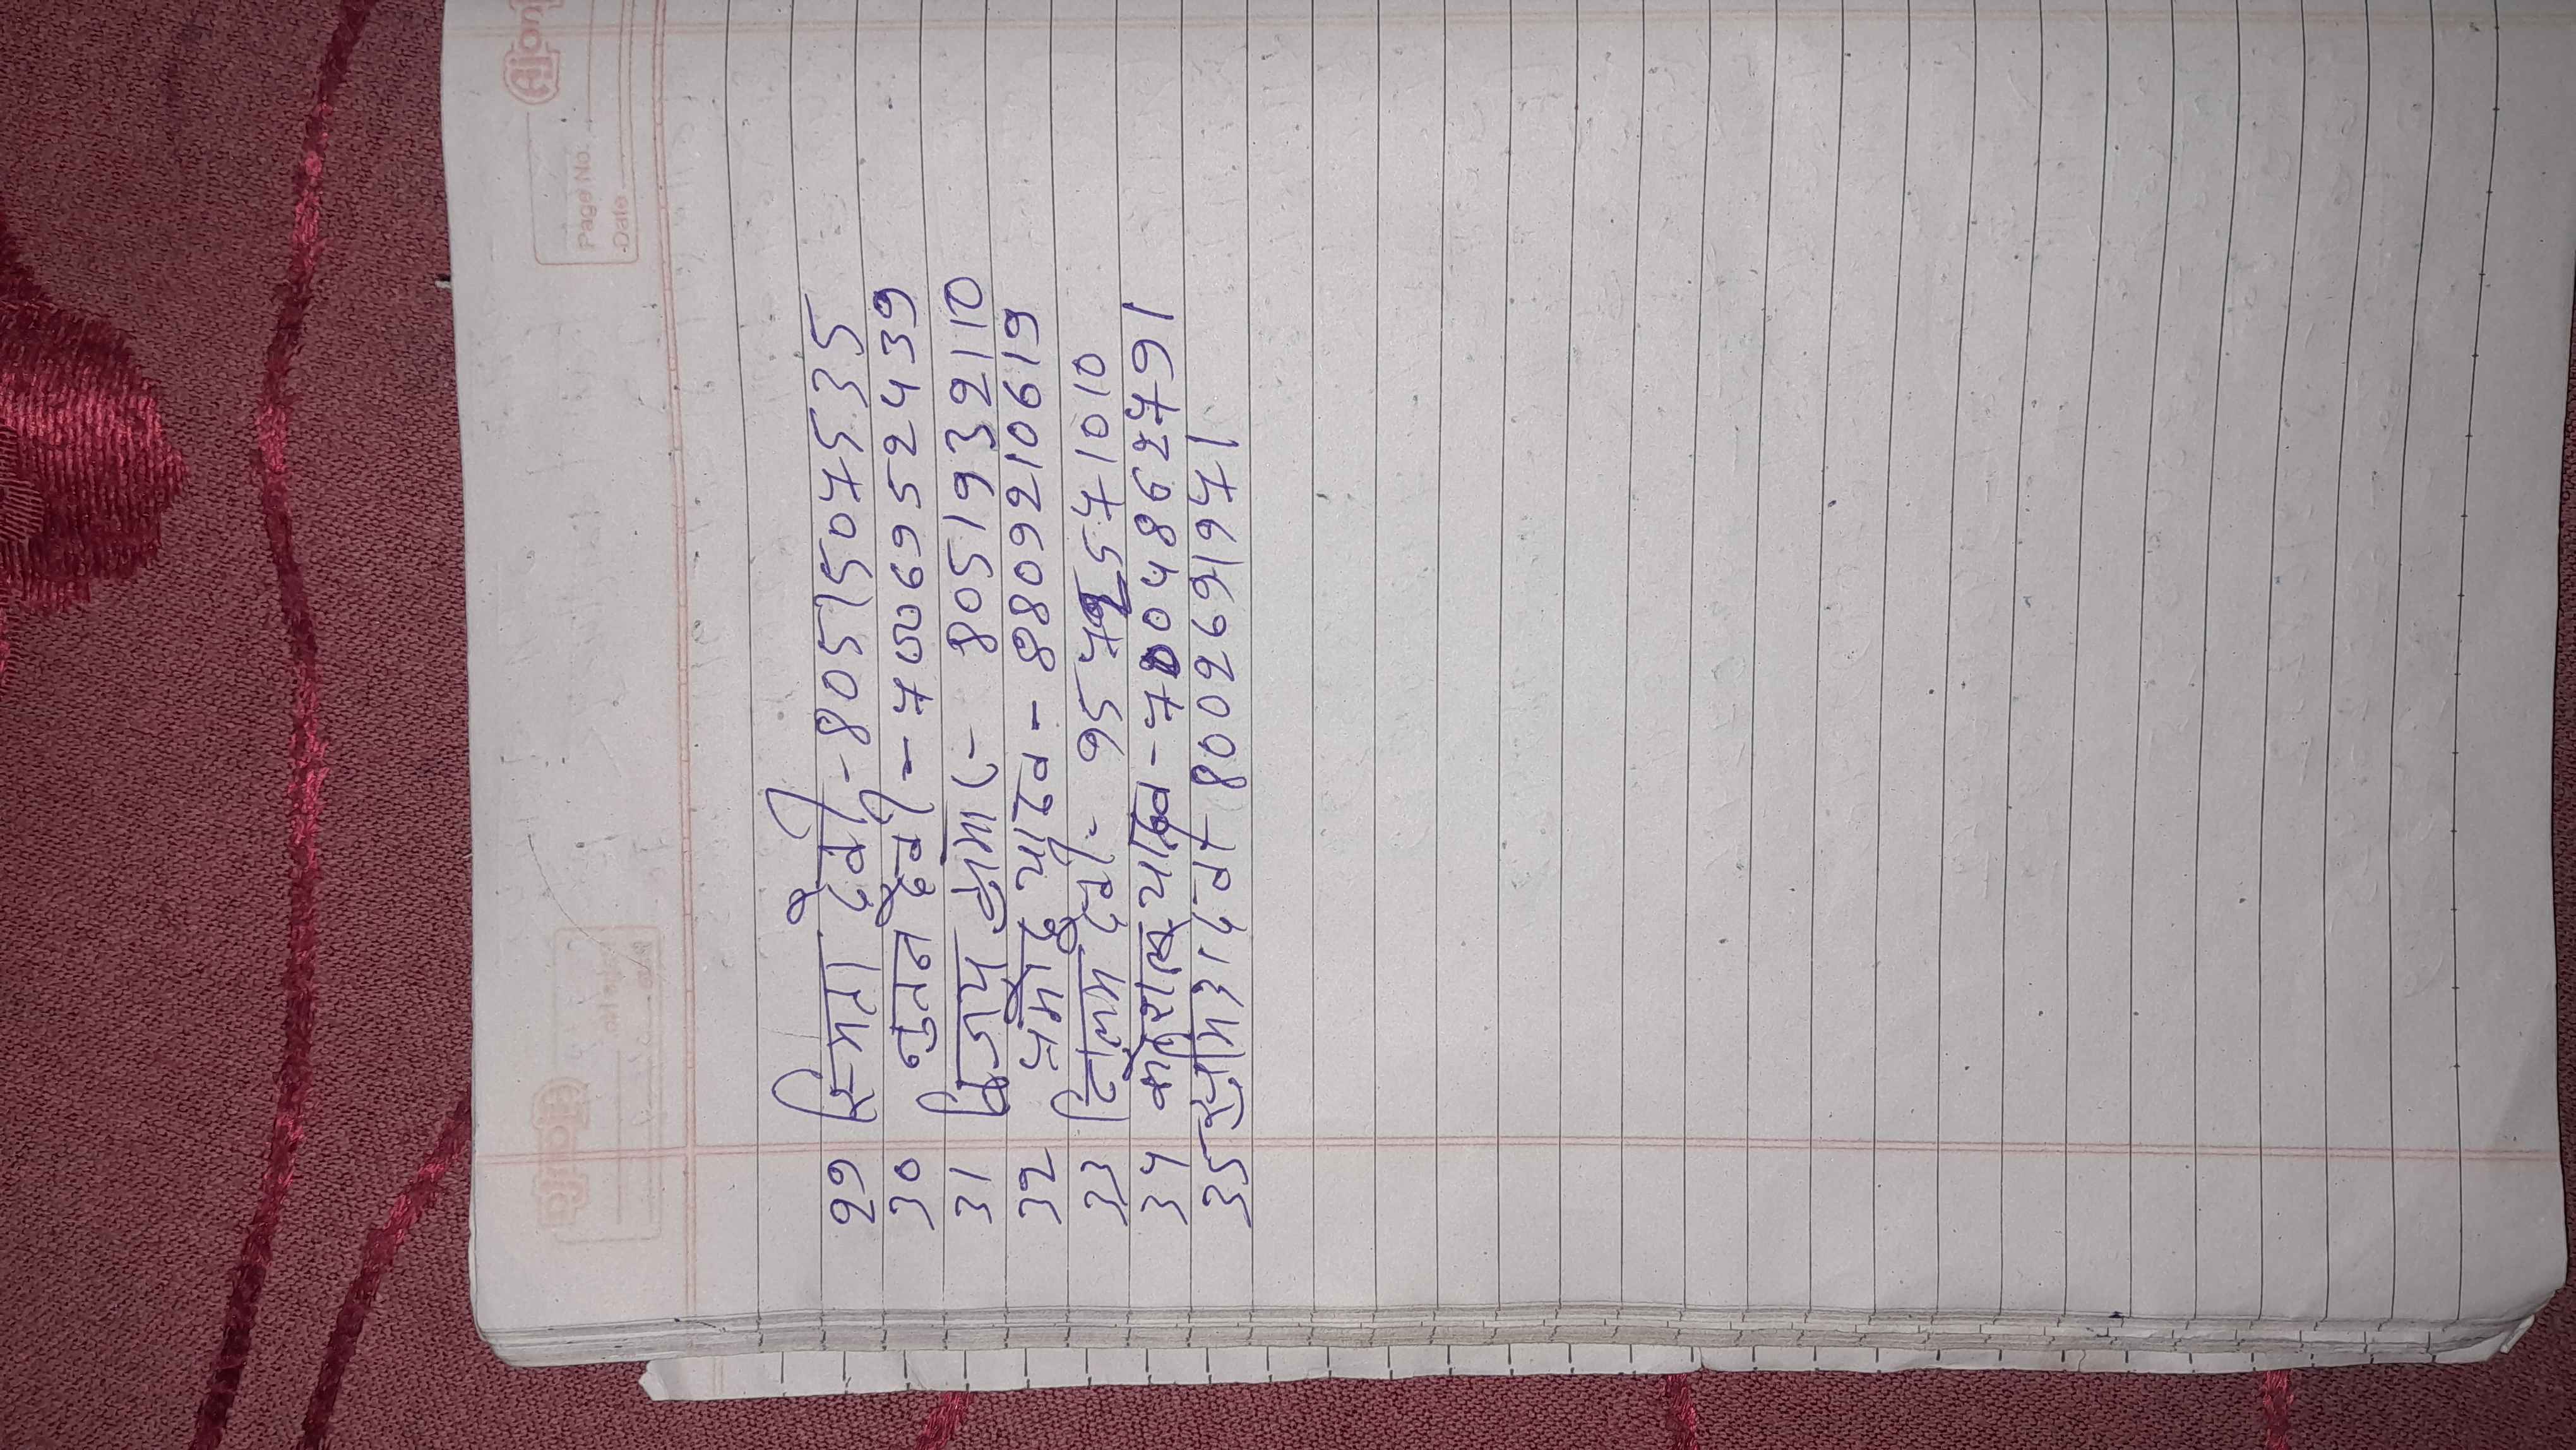 Ajanta
Page No.
Date
29 स्मिता देवी - 8051507535
30 नुतन देवी - 7006952439
31 विजय कुमार - 8051932110
32 पंमाहु यादव - 8809210619
33 निलम देवी - 9572571010
34 यादव - 7004862791
35 देवी 8002691971